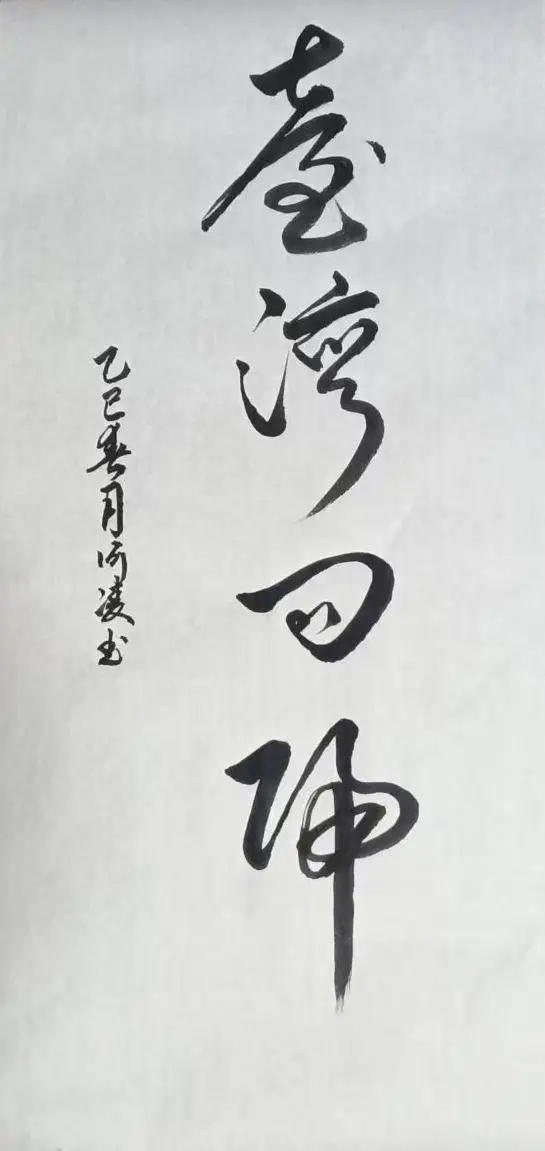 臺灣回歸
乙巳春月河凌书